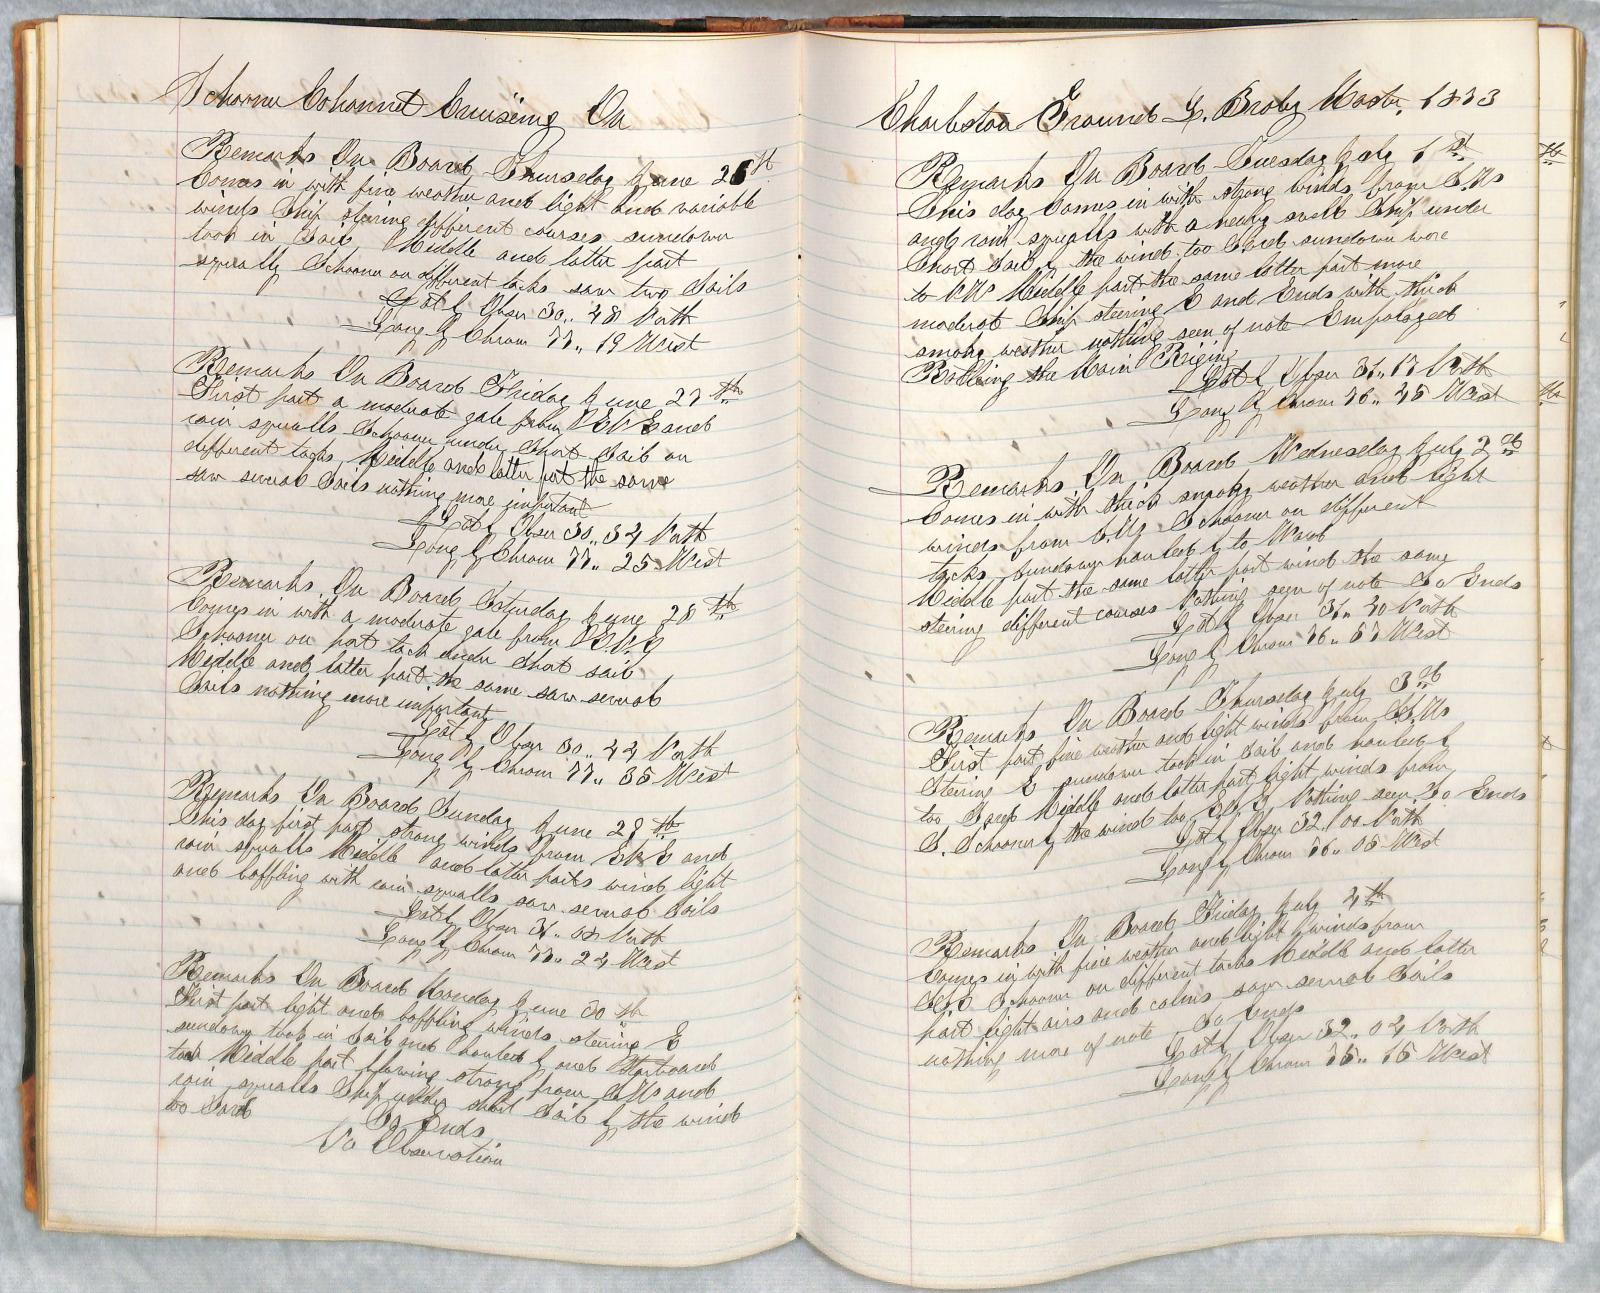 Schooner Cohannet Cruising On
Remarks On Board Thursday June 26th
Comes in with fine weather and light and variable
winds Ship stering different courses sundown
took in Sail Middle and latter part
squally Schooner on different tacks saw two Sails
Lat by Obser 30,, 48 North
Long By Chrom 77,, 19 West
Remarks On Board Friday June 27th
First part a moderate gale from and
rain squalls Schooner under Short Sail on
different tacks, Middle and latter part the same
saw several Sails nothing more important
Lat by Obser 30,, 34 North
Long By Chrom 77,, 25 West
Remarks On Board Saturday June 28th
Comes in with a moderate gale from
Schooner on port tack under Short sail
Middle and latter part the same saw several
Sails nothing more important
Lat by Obser 30,, 44 North
Long By Chrom 77,, 35 West
Remarks On Board Sunday June 29th
This day first part strong winds from and
rain squalls Middle and latter parts wind light
and baffling with rain squalls saw several Sails
Lat by Obser 31,, 02 North
Long By Chrom 77,, 24 West
Remarks On Board Monday June 30th
First part light and baffling winds steering E
sundown took in Sail and hauled by and Starboard
tack Middle part blowing strong from and
rain squalls Ship under short Sail by the wind
to Sard So Ends
No Observation
Charlston Ground L. Master 1873
Remarks On Board Tuesday July 1st
This day Comes in with strong winds from S.W
and rain squalls with a heavy swell Ship under
Short Sail by the wind to Sard sundown wore
to Middle part the same latter part more
moderate Ship steering E and Ends with thick
smoky weather nothing seen of note Employed
the Main Riging
Lat by Obser 31,, 17 North
Long By Chrom 76,, 45 West
Remarks On Board Wednesday July 2nd
Comes in with thick smoky weather and light
winds from Schooner on different
tacks, sundown hauled by to Ward
Middle part the same latter part wind the same
steering different courses Nothing seen of note So Ends
Lat by Obser 31,, 40 North
Long By Chrom 76,, 57 West
Remarks On Board Thursday July 3rd
First part fine weather and light winds from
Steering E sundown took in Sail and hauled by
too Middle and latter part light winds from
S. Schooner by the wind Nothing seen So Ends
Lat by Obser 32,, 00 North
Long By Chrom 76,, 05 West
Remarks On Board Friday July 4th
Comes in with fine weather and light winds from
Schooner on different tacks Middle and latter
part light airs and calms saw several Sails
nothing more of note So Ends
Lat by Obser 32,, 04 North
Long By Chrom 75,, 15 West